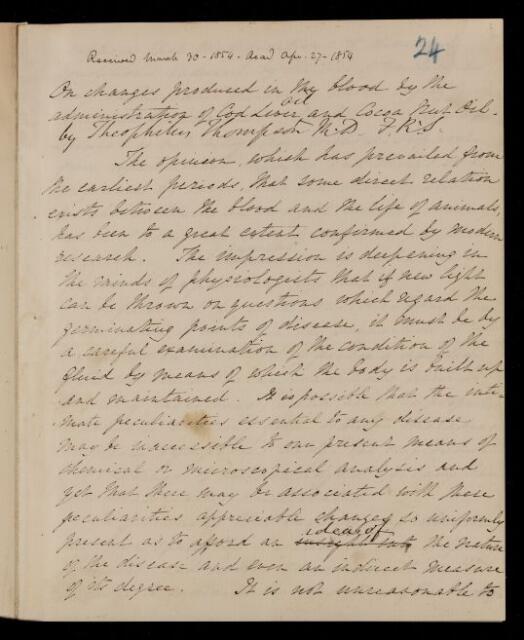 Received March 30 - 1854. Read Apr. 27 - 1854
24
On changes produced in the blood by the
administration of Cod Liver Oil and Cocoa Nut Oil.
by Theophilus Thompson M.D. F.R.S.
The opinion, which has prevailed from
the earliest periods, that some direct relation
exists between the blood and the life of animals,
has been to a great extent confirmed by modern
research. The impression is deepening in
the minds of physiologists that if new light
can be thrown on questions which regard the
germinating points of disease, it must be by
a careful examination of the condition of the
fluid by means of which the body is built up
and maintained. It is possible that the inti-
mate peculiarities essential to any disease
may be inaccessible to our present means of
chemical or microscopical analysis and
yet that there may be associated with these
peculiarities appreciable changes so uniformly
present as to afford an idea of insight into the nature
of the disease and even an indirect measure
of its degree. It is not unreasonable to